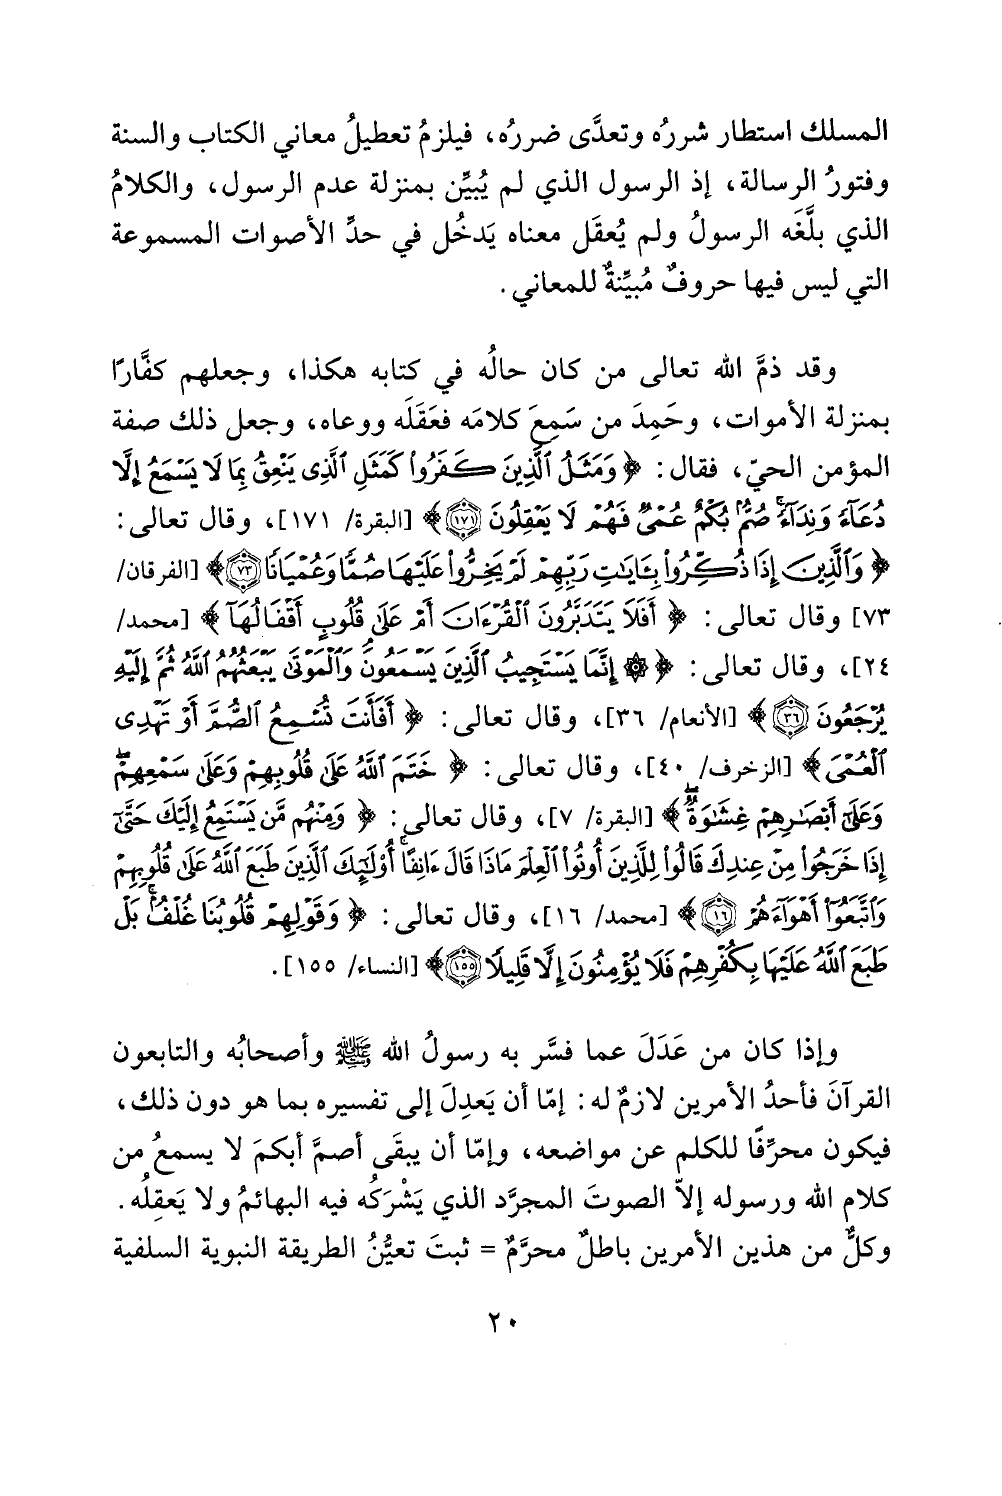 المسلك استطار شررُه وتعدَّى ضررُه، فيلزمُ تعطيلُ معاني الكتاب والسنة
وفتورُ الرسالة، إذ الرسول الذي لم يُبيِّن بمنزلة عدم الرسول، والكلامُ
الذي بلَّغَه الرسولُ ولم يُعقَل معناه يَدخُل في حدِّ الأصوات المسموعة
التي ليس فيها حروفٌ مُبيِّنةٌ للمعاني.
وقد ذمَّ الله تعالى من كان حالُه في كتابه هكذا، وجعلهم كفَّارًا
بمنزلة الأموات، وحَمِدَ من سَمِعَ كلامَه فعَقَلَه ووعاه، وجعل ذلك صفة
المؤمن الحيّ، فقال: ﴿وَمَثَلُ ٱلَّذِينَ كَفَرُوا۟ كَمَثَلِ ٱلَّذِى يَنْعِقُ بِمَا لَا يَسْمَعُ إِلَّا
دُعَآءً وَنِدَآءً ۚ صُمٌّۢ بُكْمٌ عُمْىٌ فَهُمْ لَا يَعْقِلُونَ ١٧١﴾ [البقرة/ ١٧١]، وقال تعالى:
﴿وَٱلَّذِينَ إِذَا ذُكِّرُوا۟ بِـَٔايَـٰتِ رَبِّهِمْ لَمْ يَخِرُّوا۟ عَلَيْهَا صُمًّا وَعُمْيَانًا ٧٣﴾ [الفرقان/
٧٣] وقال تعالى: ﴿أَفَلَا يَتَدَبَّرُونَ ٱلْقُرْءَانَ أَمْ عَلَىٰ قُلُوبٍ أَقْفَالُهَآ﴾ [محمد/
٢٤]، وقال تعالى: ﴿۞ إِنَّمَا يَسْتَجِيبُ ٱلَّذِينَ يَسْمَعُونَ ۘ وَٱلْمَوْتَىٰ يَبْعَثُهُمُ ٱللَّهُ ثُمَّ إِلَيْهِ
يُرْجَعُونَ ٣٦﴾ [الأنعام/ ٣٦]، وقال تعالى: ﴿أَفَأَنتَ تُسْمِعُ ٱلصُّمَّ أَوْ تَهْدِى
ٱلْعُمْىَ﴾ [الزخرف/ ٤٠]، وقال تعالى: ﴿خَتَمَ ٱللَّهُ عَلَىٰ قُلُوبِهِمْ وَعَلَىٰ سَمْعِهِمْ ۖ
وَعَلَىٰٓ أَبْصَـٰرِهِمْ غِشَـٰوَةٌ ۖ﴾ [البقرة/ ٧]، وقال تعالى: ﴿وَمِنْهُم مَّن يَسْتَمِعُ إِلَيْكَ حَتَّىٰٓ
إِذَا خَرَجُوا۟ مِنْ عِندِكَ قَالُوا۟ لِلَّذِينَ أُوتُوا۟ ٱلْعِلْمَ مَاذَا قَالَ ءَانِفًا ۚ أُو۟لَـٰٓئِكَ ٱلَّذِينَ طَبَعَ ٱللَّهُ عَلَىٰ قُلُوبِهِمْ
وَٱتَّبَعُوٓا۟ أَهْوَآءَهُمْ ١٦﴾ [محمد/ ١٦]، وقال تعالى: ﴿وَقَوْلِهِمْ قُلُوبُنَا غُلْفٌۢ ۚ بَلْ
طَبَعَ ٱللَّهُ عَلَيْهَا بِكُفْرِهِمْ فَلَا يُؤْمِنُونَ إِلَّا قَلِيلًا ١٥٥﴾ [النساء/ ١٥٥].
وإذا كان من عَدَلَ عما فسَّر به رسولُ الله ﷺ وأصحابُه والتابعون
القرآنَ فأحدُ الأمرين لازمٌ له: إمّا أن يَعدِلَ إلى تفسيره بما هو دون ذلك،
فيكون محرِّفًا للكلم عن مواضعه، وإمّا أن يبقَى أصمَّ أبكمَ لا يسمعُ من
كلام الله ورسوله إلاّ الصوتَ المجرَّد الذي يَشْرَكُه فيه البهائمُ ولا يَعقِلُه.
وكلٌّ من هذين الأمرين باطلٌ محرَّمٌ = ثبتَ تعيُّنُ الطريقة النبوية السلفية
٢٠